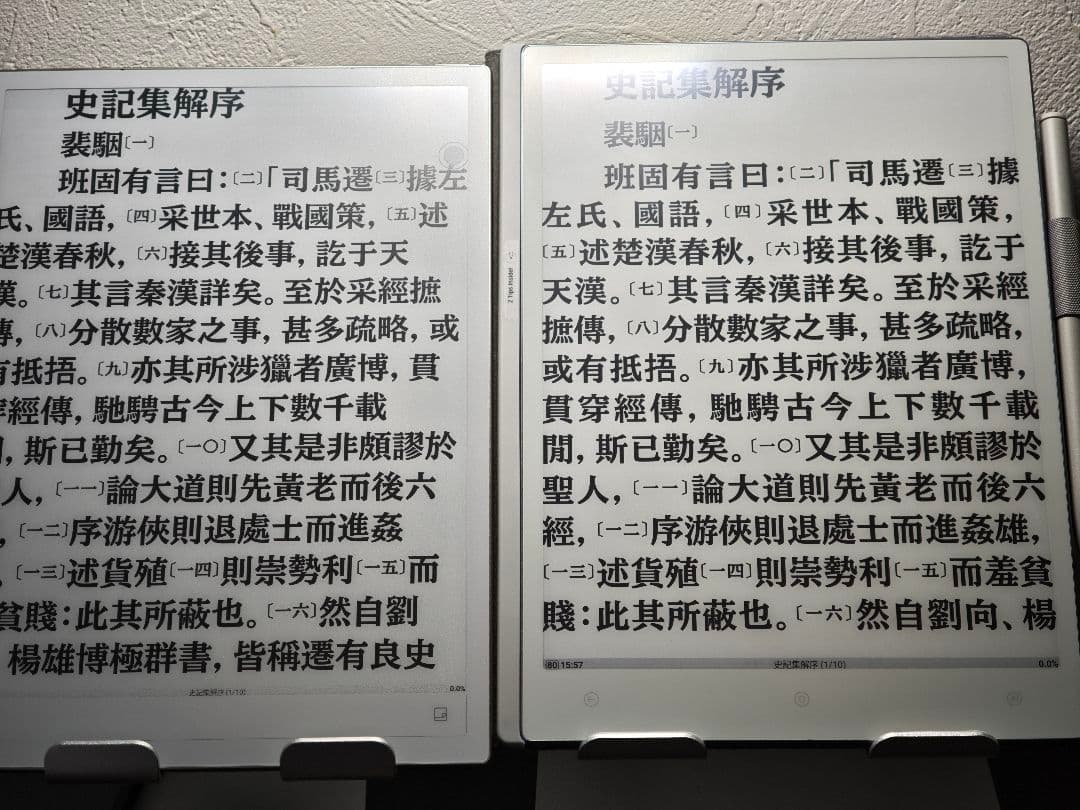 史記集解序
裴駰〔一〕
班固有言曰:〔二〕「司馬遷〔三〕據左
氏、國語,〔四〕采世本、戰國策,〔五〕述
楚漢春秋,〔六〕接其後事,訖于天
漢。〔七〕其言秦漢詳矣。至於采經摭
傳,〔八〕分散數家之事,甚多疏略,或
有抵捂。〔九〕亦其所涉獵者廣博,貫
穿經傳,馳騁古今上下數千載
閒,斯已勤矣。〔一〇〕又其是非頗謬於
人,〔一一〕論大道則先黃老而後六
,〔一二〕序游俠則退處士而進姦
,〔一三〕述貨殖〔一四〕則崇勢利〔一五〕而
貧賤:此其所蔽也。〔一六〕然自劉
楊雄博極群書,皆稱遷有良史
史記集解序 (1/10)
0.0%
史記集解序
裴駰〔一〕
班固有言曰:〔二〕「司馬遷〔三〕據
左氏、國語,〔四〕采世本、戰國策,
〔五〕述楚漢春秋,〔六〕接其後事,訖于
天漢。〔七〕其言秦漢詳矣。至於采經
摭傳,〔八〕分散數家之事,甚多疏略,
或有抵捂。〔九〕亦其所涉獵者廣博,
貫穿經傳,馳騁古今上下數千載
閒,斯已勤矣。〔一〇〕又其是非頗謬於
聖人,〔一一〕論大道則先黃老而後六
經,〔一二〕序游俠則退處士而進姦雄,
〔一三〕述貨殖〔一四〕則崇勢利〔一五〕而羞貧
賤:此其所蔽也。〔一六〕然自劉向、楊
80 15:57
史記集解序 (1/10)
0.0%